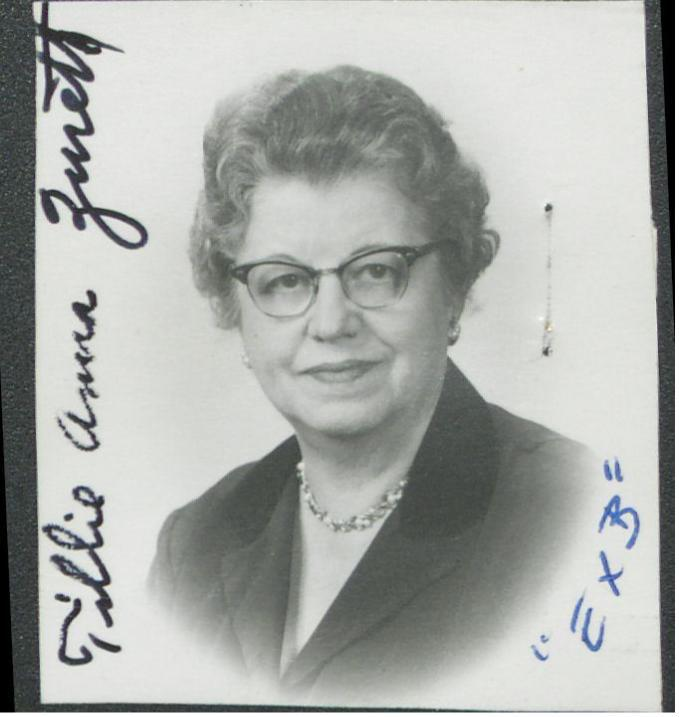 Tillie Anna Zunett
"EX B"